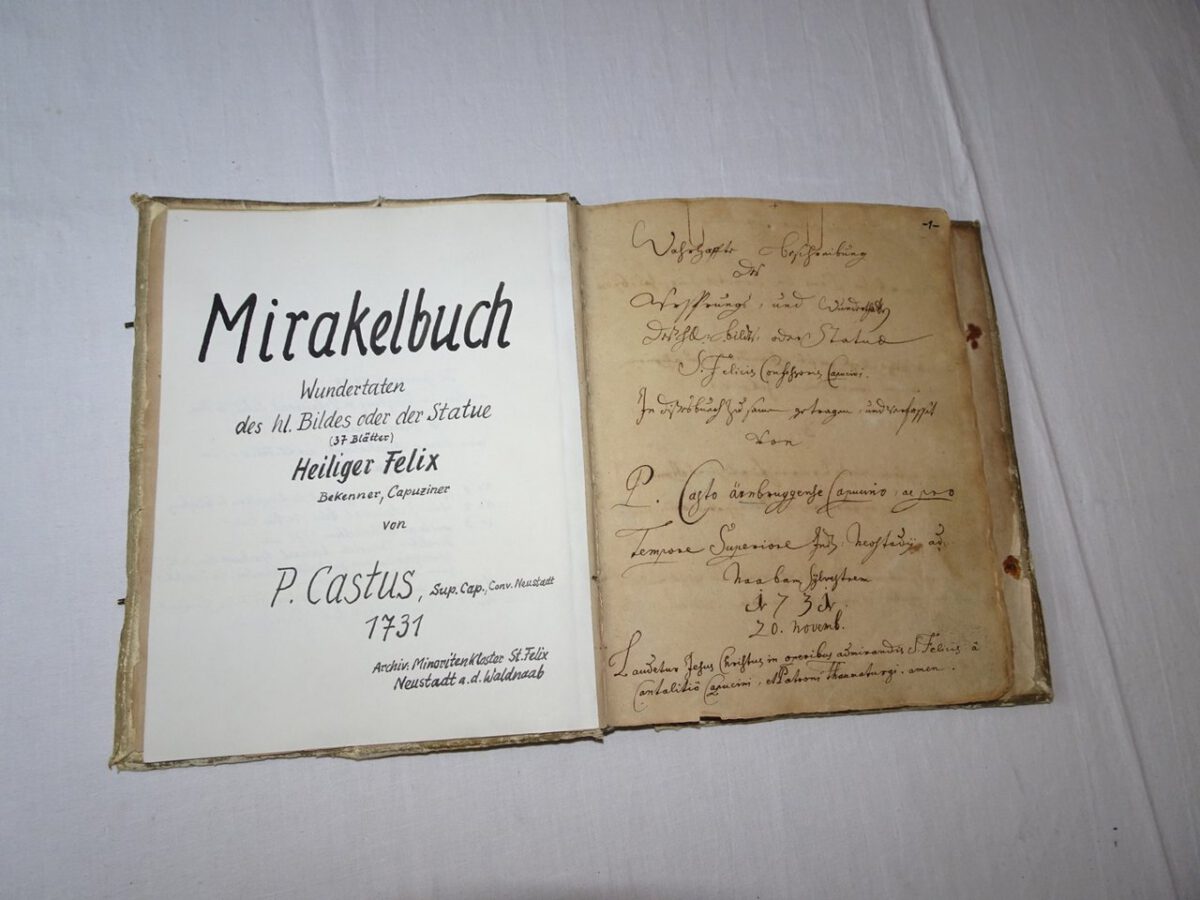 Mirakelbuch
Wundertaten
des hl. Bildes oder der Statue
(37 Blätter)
Heiliger Felix
Bekenner, Capuziner
von
P. Castus, Sup. Cap., Conv. Neustadt
1731
Archiv. Minoritenkloster St. Felix
Neustadt a. d. Waldnaab
-1-
Wahrhaffte Beschreibung
des
Ursprungs, und Wunderthaten
des hl. bilds, oder Statuae
S. Felicis Confessoris Capucini.
In dises buech zusamen getragen, und verfasset
von
P. Casto ärnbruggense Capucino, ac pro
Tempore Superiore Neostadij ad
Naabam sylvestrem
1731.
20. Novemb.
Laudetur Jesus Christus in operibus admirandis S. Felicis à
Cantalitio Capucini, et Patroni Thaumaturgi. amen.